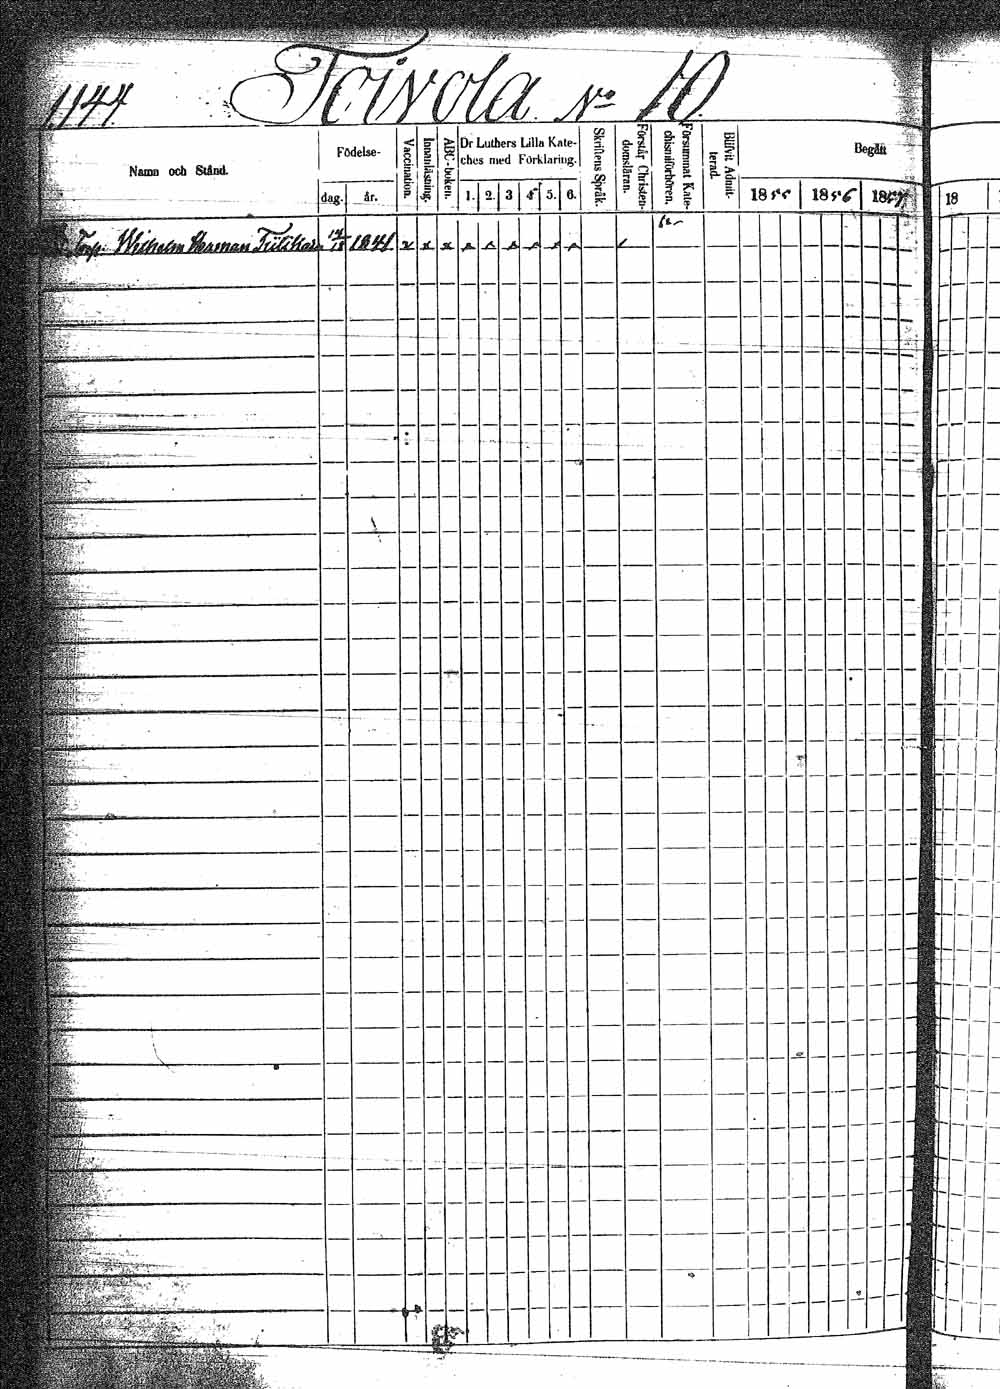 1144.
Toivola No 10.
Namn och Stånd.
Födelse-
dag.
år.
Vaccination.
Innanläsning.
ABC-boken.
Dr Luthers Lilla Kate-
ches med Förklaring.
1. 2. 3 4 5. 6.
Skriftens Språk.
Förstår Christen-
domsläran.
Försummat Kate-
chismiförhören.
Blifvit Admit-
terad.
Begått
1855 1856 1857
18
Torp. Wilhelm Herman 1841